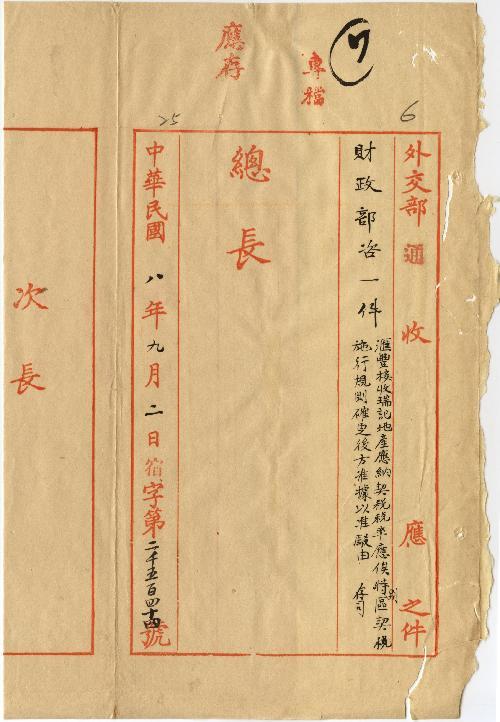 ワ
專檔
應存
6
25
外交部 通 收 應 之件
財政部咨一件
滙豐核收瑞記地產應納契稅稅率應俟特區契稅
施行規則確定後方准據以准駁由 存司
總長
中華民國 八 年 九 月 二 日 宿 字第 二千五百四十四 號
次長